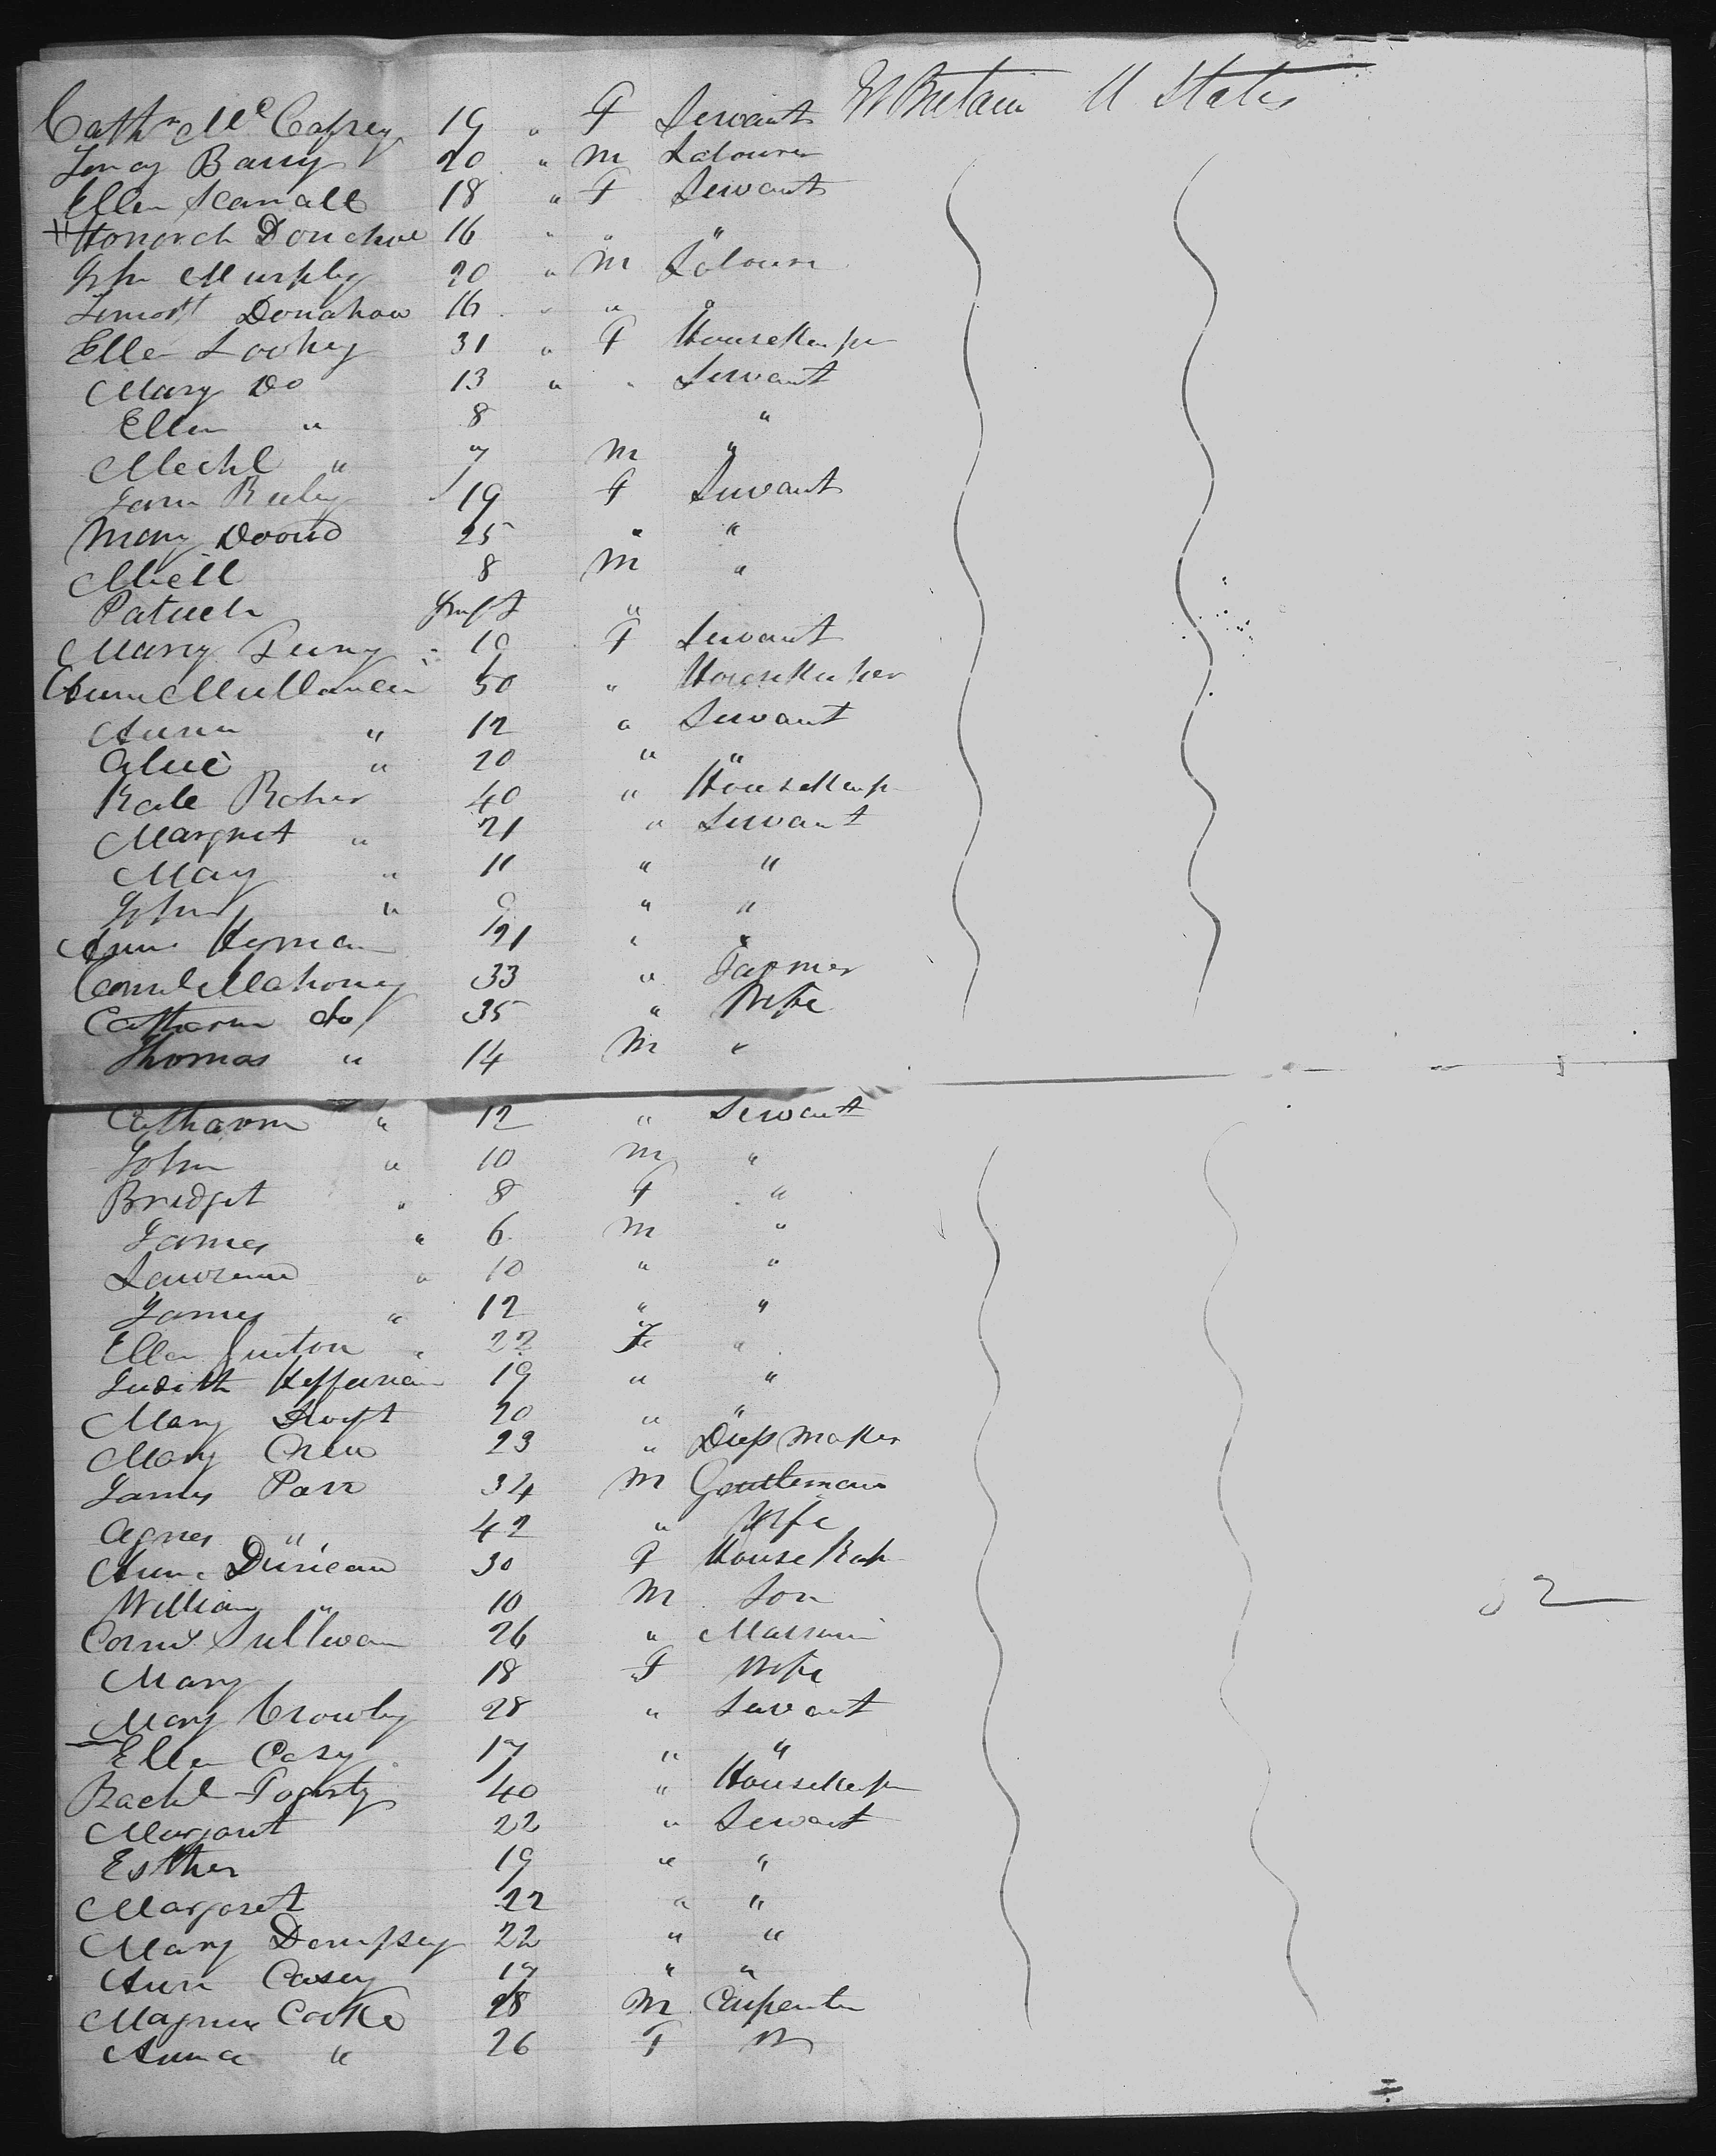 Cathn McCafrey 19 " F Servant Gt Britain U States
Barry 20 " M Labourer
Ellen Scanall 18 " F Servant
Honorah Donohue 16 " " "
John Murphy 20 " M Labourer
Timoth Donahow 16 " " "
Ellen Loohy 31 " F HouseKeeper
Mary Do 13 " " Servant
Ellen " 8 "
Michl " 7 M "
19 F Servant
Mary 25 " "
8 M "
Patrick Inft "
Mary F Servant
50 " HouseKeeper
Anna " 12 " Servant
Alice " 20 " "
Kate Roher 40 " HouseKeep
Margret " 21 " Servant
Mary " 11 " "
John " 9 " "
Ann 21 " "
Cornl Mahoney 33 " Farmer
Catharin do 35 " Wife
Thomas " 14 M "
Catharin " 12 " Servant
John " 10 M "
Bridget " 8 F "
James " 6 M "
Lawrence " 10 " "
James " 12 " "
Ellen " 22 F "
Judith Heffernan 19 " "
Mary Swift 20 " "
Mary Crew 23 " Dressmaker
James Parr 34 M Gentleman
Agnes " 42 " Wife
Ann Duncan 30 F House Keep
William " 10 M Son
Cornl Sullivan 26 "
Mary 18 F Wife
Mary Crowley 28 " Servant
Ellen Casy 17 " "
Rachl Fogerty 40 " HouseKeep
Margaret 22 " Servant
Esther 19 " "
Margaret 22 " "
Mary Dempsey 22 " "
Ann Casey 17 " "
Magnus Cooke 28 M Carpenter
Anna " 26 F W